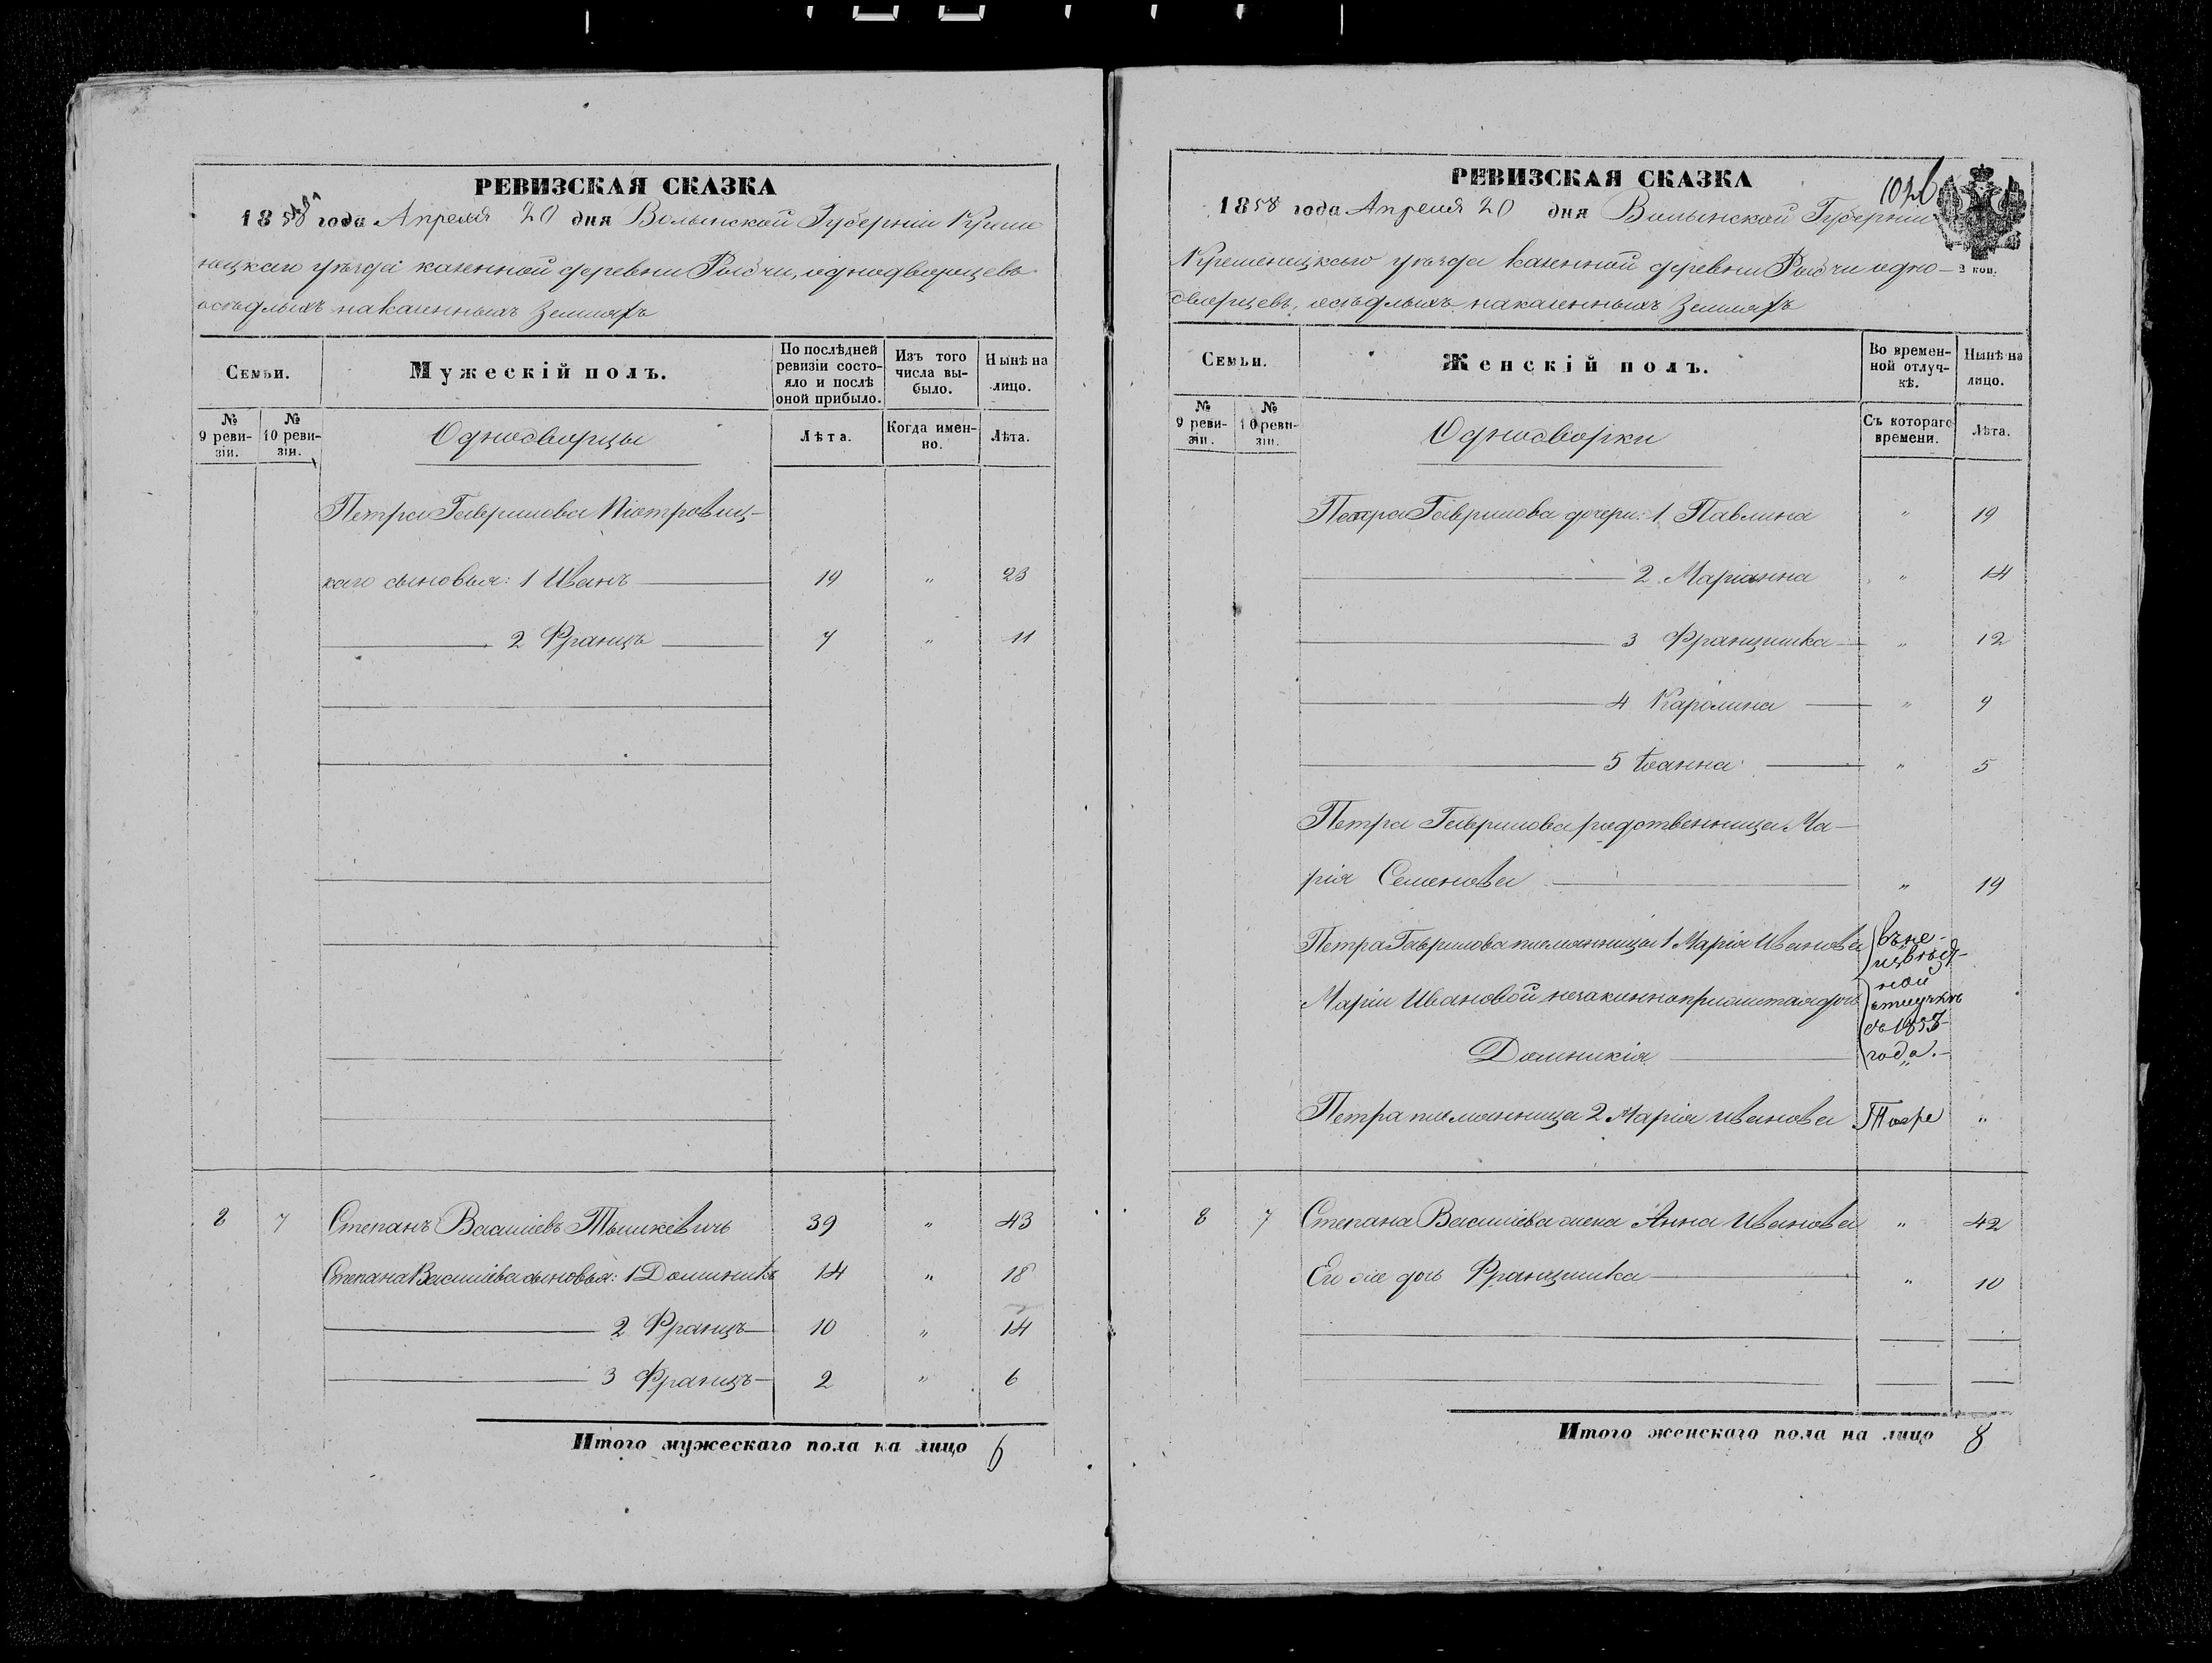 РЕВИЗСКАЯ СКАЗКА
1858 года Апреля 20 дня Волынской Губерніи Креме
ницкаго уѣзда казенной деревни Рыдчи, однодворцевъ
осѣдлыхъ на казенныхъ земляхъ
Семьи.
Мужескій полъ.
По послѣдней ревизіи состояло и послѣ оной прибыло.
Изъ того числа выбыло.
Нынѣ на лицо.
№ 9 ревизіи.
№ 10 ревизіи.
Однодворцы
Лѣта.
Когда именно.
Лѣта.
Петра Гаврилова Піотровиц-
каго сыновья: 1 Иванъ 19 " 23
2 Францъ 7 " 11
8 7 Степанъ Васильевъ Тышкевичъ 39 " 43
Степана Васильева сыновья: 1 Доминикъ 14 " 18
2 Францъ 10 " 14
3 Францъ 2 " 6
Итого мужескаго пола на лицо 6
РЕВИЗСКАЯ СКАЗКА
1858 года Апреля 20 дня Волынской Губерніи
Кременицкаго уѣзда казенной деревни Рыдчи одно-
дворцевъ, осѣдлыхъ на казенныхъ земляхъ
2 коп.
Семьи.
Женскій полъ.
Во временной отлучкѣ.
Нынѣ на лицо.
№ 9 ревизіи.
№ 10 ревизіи.
Однодворки
Съ котораго времени.
Лѣта.
Петра Гаврилова дочери: 1 Павлина " 19
2 Маріанна " 14
3 Францишка " 12
4 Каролина " 9
5 Іоанна " 5
Петра Гаврилова родственница Ма-
рія Семенова " 19
Петра Гаврилова племянницы 1 Марія Иванова
Маріи Ивановой незаконноприжитая дочь
Домникія
въ не-
извѣст-
ной
отлучкѣ
съ
года.
Петра племянница 2 Марія Иванова Тоже "
8 7 Степана Васильева жена Анна Иванова " 42
Его же дочь Францишка " 10
Итого женскаго пола на лицо 8